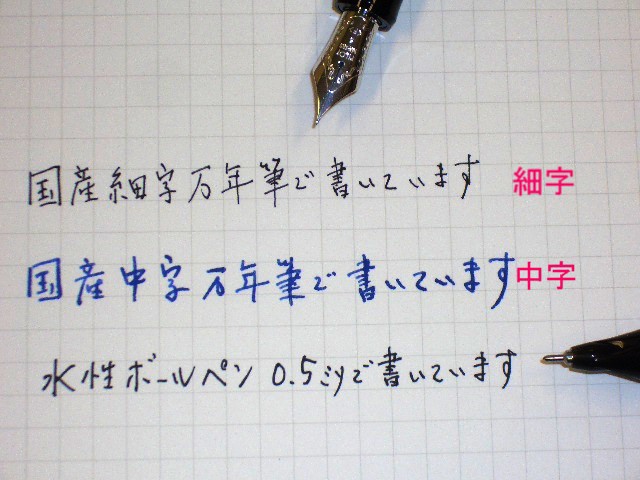 国産細字万年筆で書いています 細字
国産中字万年筆で書いています 中字
水性ボールペン 0.5ミリで書いています